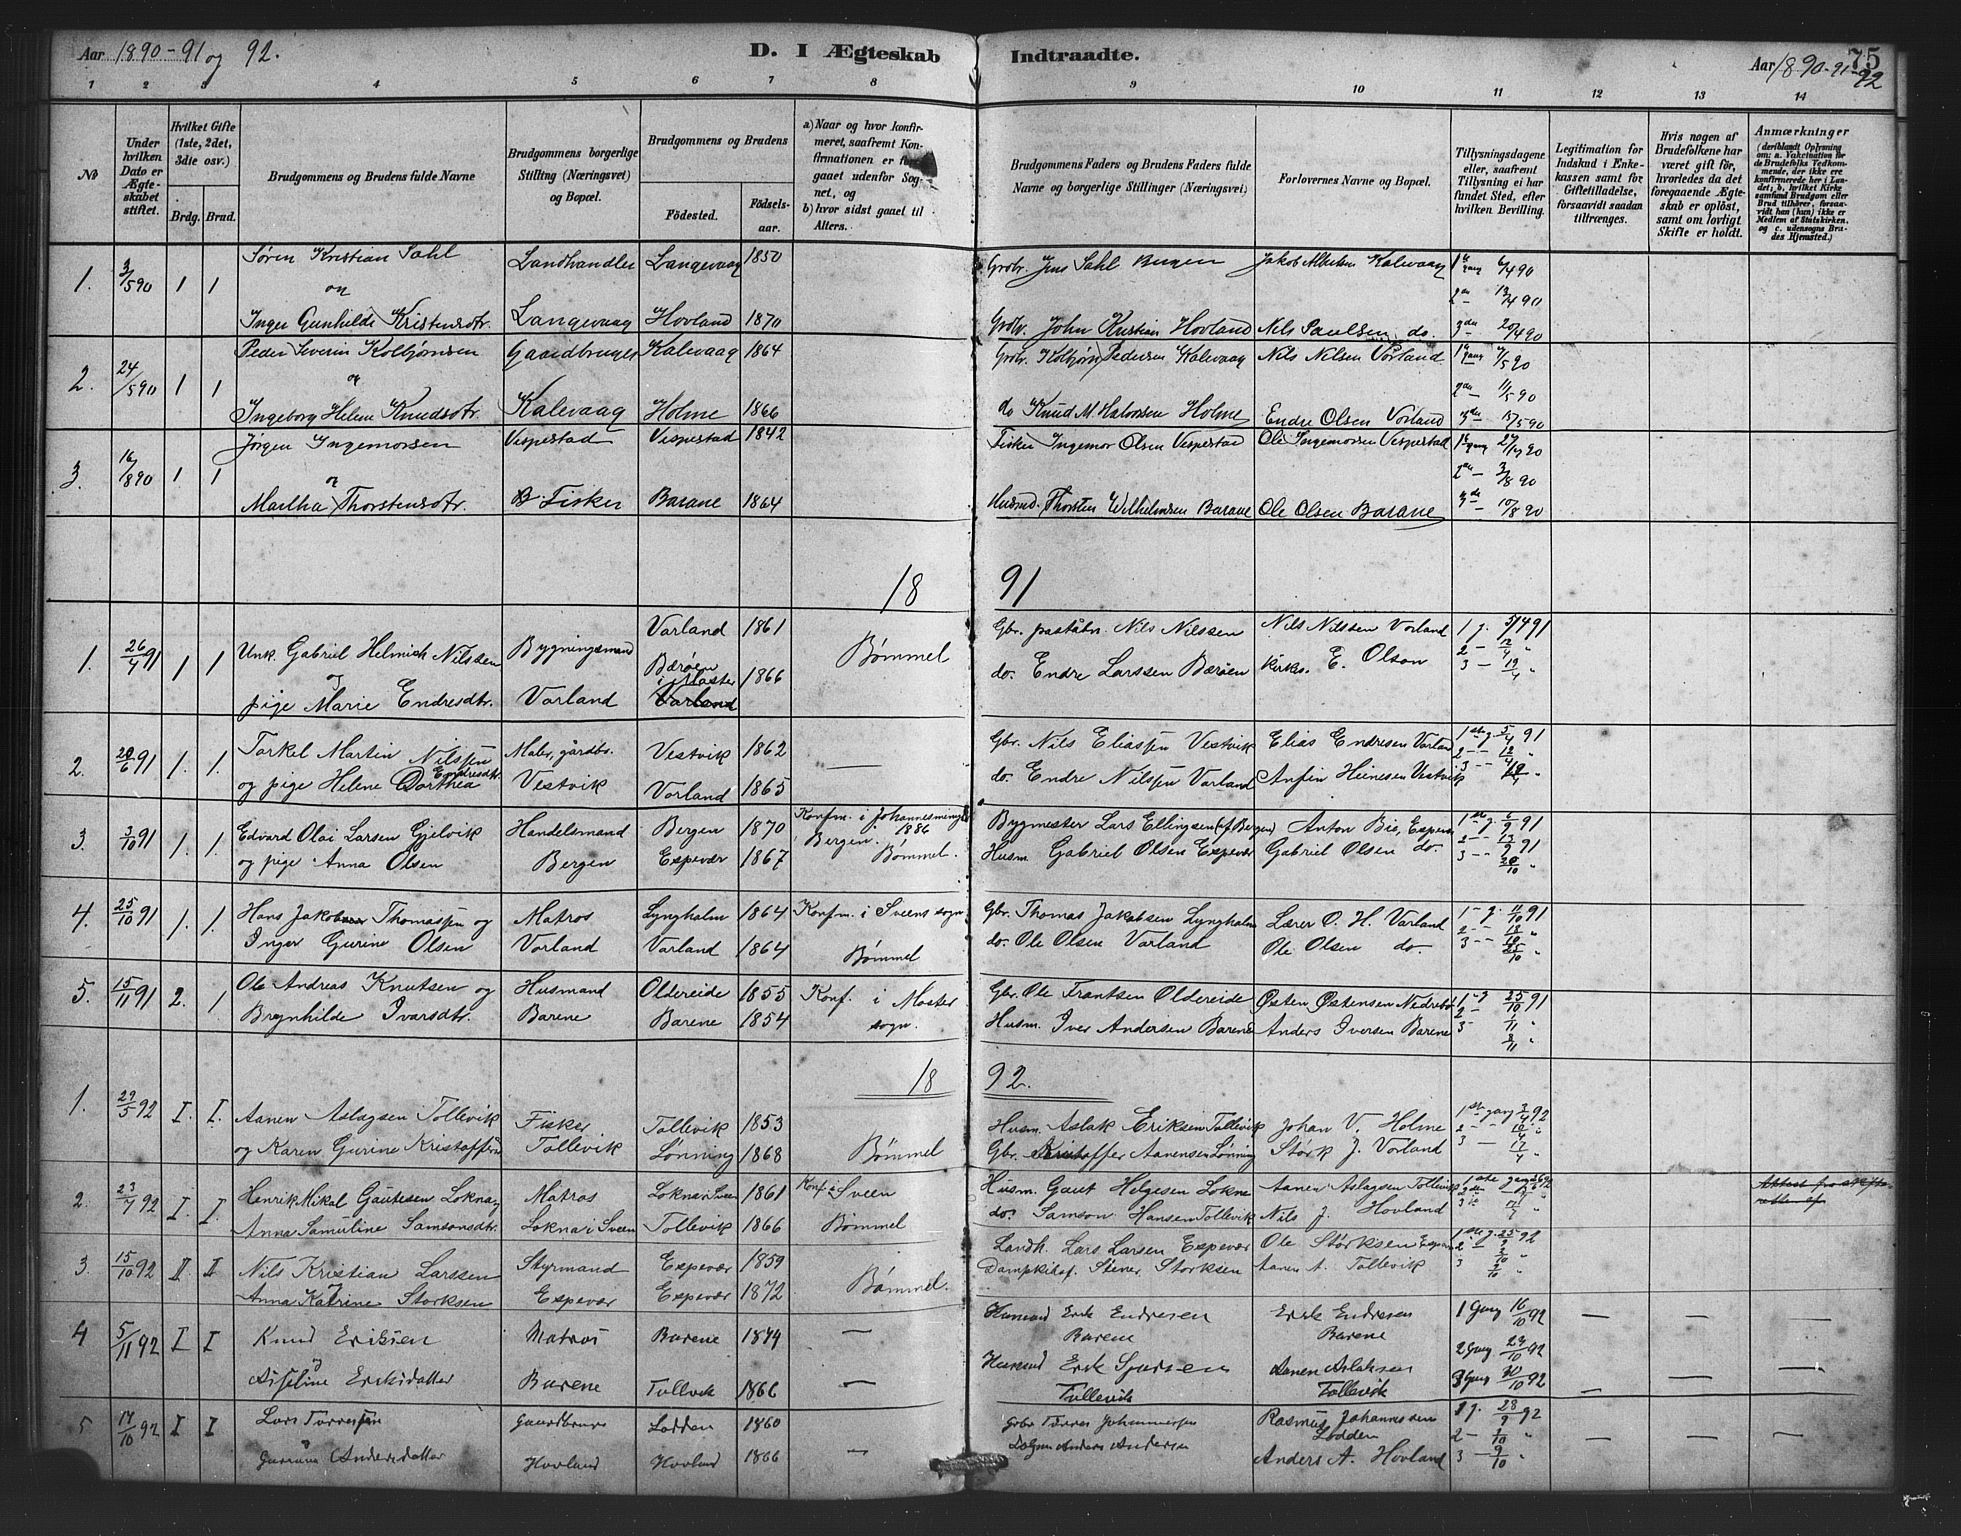 Aar 1890-91 og 92.
D. I Ægteskab Indtraadte.
Aar 1890-91-92
75
1 2 3 4 5 6 7 8 9 10 11 12 13 14
No
Under hvilken Dato er Ægteskabet stiftet.
Hvilket Gifte (1ste, 2det, 3die osv.)
Brdg. Brud.
Brudgommens og Brudens fulde Navne
Brudgommens borgerlige Stilling (Næringsvei) og Bopæl.
Brudgommens og Brudens
Födested. Födselsaar.
a) Naar og hvor konfirmeret, saafremt Konfirmationen er foregaaet udenfor Sognet, og
b) hvor sidst gaaet til Alters.
Brudgommens Faders og Brudens Faders fulde Navne og borgerlige Stillinger (Næringsvei)
Forlovernes Navne og Bopæl.
Tillysningsdagene eller, saafremt Tillysning ei har fundet Sted, efter hvilken Bevilling.
Legitimation for Indskud i Enkekassen samt for Giftetilladelse, forsaavidt saadan tiltrænges.
Hvis nogen af Brudefolkene har været gift för, hvorledes da det foregaaende Ægteskab er oplöst, samt om lovligt Skifte er holdt.
Anmærkninger (deriblandt Oplysning om: a. Vakcination for de Brudefolks Vedkommende, der ikke ere konfirmerede her i Landet; b. hvilket Kirkesamfund Brudgom eller Brud tilhörer, forsaavidt han (hun) ikke er Medlem af Statskirken. og c. udensogns Brudes Hjemsted.)
1. 3/5 90 1 1 Søren Kristian Sahl Landhandler Langevaag 1850 Grdbr. Jens Sahl Bergen Jakob Albertsen Kalevaag 1ste gang 6/4 90
og 2den — 13/4 90
Inger Gunhilde Kristensdtr. Langevaag Hovland 1870 Grdbr. John Kristian Hovland Nils Paulsen do. 3die 20/4 90
2. 24/5 90 1 1 Peder Severin Kolbjørnsen Gaardbruger Kalevaag 1864 Grdbr. Kolbjørn Pedersen Kalevaag Nils Nilsen Vorland 1ste gang 4/5 90
og 2den — 11/5 90
Ingeborg Helene Knudsdtr. Kalevaag Holme 1866 do Knud M. Halvorsen Holme Endre Olsen Vorland 3die — 15/5 90
3. 16/8 90 1 1 Jørgen Ingemorsen Vespestad Vespestad 1842 Fisker Ingemor Olsen Vespestad Ole Ingemorsen Vespestad 1ste gang 27/7 90
og 2den — 3/8 90
Martha Thorstensdtr. Fisker Barane 1864 Husmd. Thorsten Wilhelmsen Barane Ole Olsen Barane 3die — 10/8 90
18 91
1. 26/4 91 1 1 Unk. Gabriel Helmich Nilssen Bygningsmand Vorland 1861 Bømmel Gbr. Nils Nilssen Nils Nilssen Vorland 1 g. 5/4 91
og Bærøen i Moster 1866 do. Endre Larssen Bærøen Kirkes. E. Olson 2 — 12/4
pige Marie Endresdtr. Vorland Vorland 3 — 19/4
2. 28/6 91 1. 1. Torkel Martin Nilssen Maler, gårdbr. Vestvik 1862 — Gbr. Nils Eliassen Vestvik Elias Endresen Vorland 1ste g. 5/4 91
og pige Helene Dorthea Endresdtr. Vestvik Vorland 1865 do. Endre Nilssen Vorland Anfin Heinesen Vestvik 2 — 12/4 "
3 — 19/4 "
3. 3/10 91 1. 1. Edvard Olai Larsen Gjelvik Handelsmand Bergen 1870 Konfm. i Johannesmenigh. i Bergen. 1886 Bygmester Lars Ellingsen (af Bergen) Anton Bis, Espevær 1ste g. 6/9 91
og pige Anna Olsen Bergen Espevær 1867 Bømmel. Husm. Gabriel Olsen Espevær Gabriel Olsen do. 2 — 13/9 91
3 —
4. 25/10 91 1. 1. Hans Jakob Thomassen og Matros Lyngholm 1864 Konfm. i Sveens sogn. Gbr. Thomas Jakobsen Lyngholm Lærer O. H. Vorland 1 — g. 11/10 91
Inger Gurine Olsen Vorland Vorland 1864 Bømmel do. Ole Olsen Vorland Ole Olsen do. 2 — 18/10 "
3 — 25/10 "
5. 15/11 91 2. 1. Ole Andreas Knutsen og Husmand Oldereide 1855 Konf. i Moster sogn. Gbr. Ole Frantsen Oldereide Østen Østensen Nedrebø 1 — g 25/10 91
Brynhilde Ivarsdtr. Barene Barene 1854 Husm. Iver Andersen Barene Anders Iversen Barene 2 — 1/11 "
3 — 8/11 "
18 92.
1. 29/5 92 I. I. Aanen Aslagsen Tollevik Fisker Tollevik 1853 Husm. Aslak Eriksen Tollevik Johan V. Holme 1ste gang 3/4 92
og Karen Gurine Kristoffersen Tollevik Lønning 1868 Bømmel Gbr. Kristoffer Aanensen Lønning Størk J. Vorland 2 — 10/4 "
3 — 17/4 "
2. 23/7 92 I. I. Henrik Mikal Gautesen Lokna og Matros Lokna i Sveen 1861 Konf. i Sveen Husm. Gaut Helgesen Lokne Aanen Aslagsen Tollevik 1ste gang
Anna Samuline Samsonsdtr. Lokna i Sveen Tollevik 1866 Bømmel do. Samson Hansen Tollevik Nils J. Hovland
Attest fra skifteretten af
3. 15/10 92 II II Nils Kristian Larssen Styrmand Espevær 1859 Landh. Lars Larsen Espevær Ole Størksen Espevær 1ste g. 25/9 92
Anna Katrine Storksen Espevær Espevær 1872 Bømmel. Dampskibsf. Stener Storksen Aanen A. Tollevik 2 — 2/10 "
3 9/10 "
4 5/11 92 I I Knud Eriksen Matros Barene 1874 — Husmand Erik Endresen Erik Endresen 1 Gang 16/10 92 — — —
og Barene Barene 2 Gang 23/10 92
Aseline Eriksdatter Barene Tollevik 1866 — Husmand Erik Sjursen Aanen Aslaksen 3 Gang 30/10 92 — — —
Tollevik Tollevik
5 17/10 92 I I Lars Torressen Gaardbruger Lodden 1860 Grbr Tørres Johannessen Rasmus Johannessen 1 g. 28/9 92
og Lodden 2 — 2/10 " — — —
Andersdatter Hovland Hovland 1866 — Anders Andersen Anders A. Hovland 3 — 9/10 "